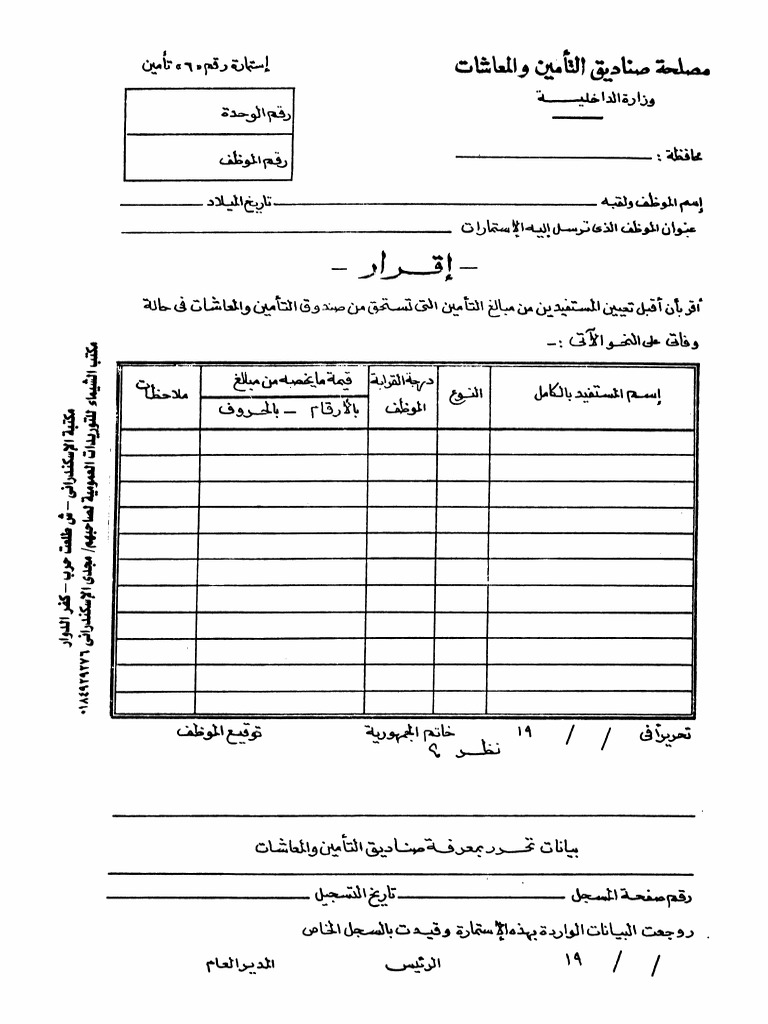 مصلحة صناديق التأمين والمعاشات
إستمارة رقم «٦» تأمين
وزارة الداخلية
رقم الوحدة
محافظة :
رقم الموظف
إسم الموظف ولقبه
تاريخ الميلاد
عنوان الموظف الذى ترسل إليه الإستمارات
- إقرار -
أقر بأن أقبل تعيين المستفيدين من مبالغ التأمين التى تستحق من صندوق التأمين والمعاشات فى حالة
وفاتى على النحو الآتى :-
إسم المستفيد بالكامل
النوع
درجة القرابة
الموظف
قيمة ما يخصه من مبالغ
بالأرقام - بالحروف
ملاحظات
مكتب الشيماء للتوريدات العمومية لصاحبهم/ مجدى الإسكندرانى ٠١٨٤٩٢٩٢٧٦
مكتبة الإسكندرانى - ش طلعت حرب - كفر الدوار
تحريرأ فى / / ١٩
خاتم الجمهورية
توقيع الموظف
نظر ؟
بيانات تحرر بمعرفة صناديق التأمين والمعاشات
رقم صفحة المسجل
تاريخ التسجيل
روجعت البيانات الواردة بهذه الإستمارة وقيدت بالسجل الخاص
/ / ١٩
الرئيس
المدير العام